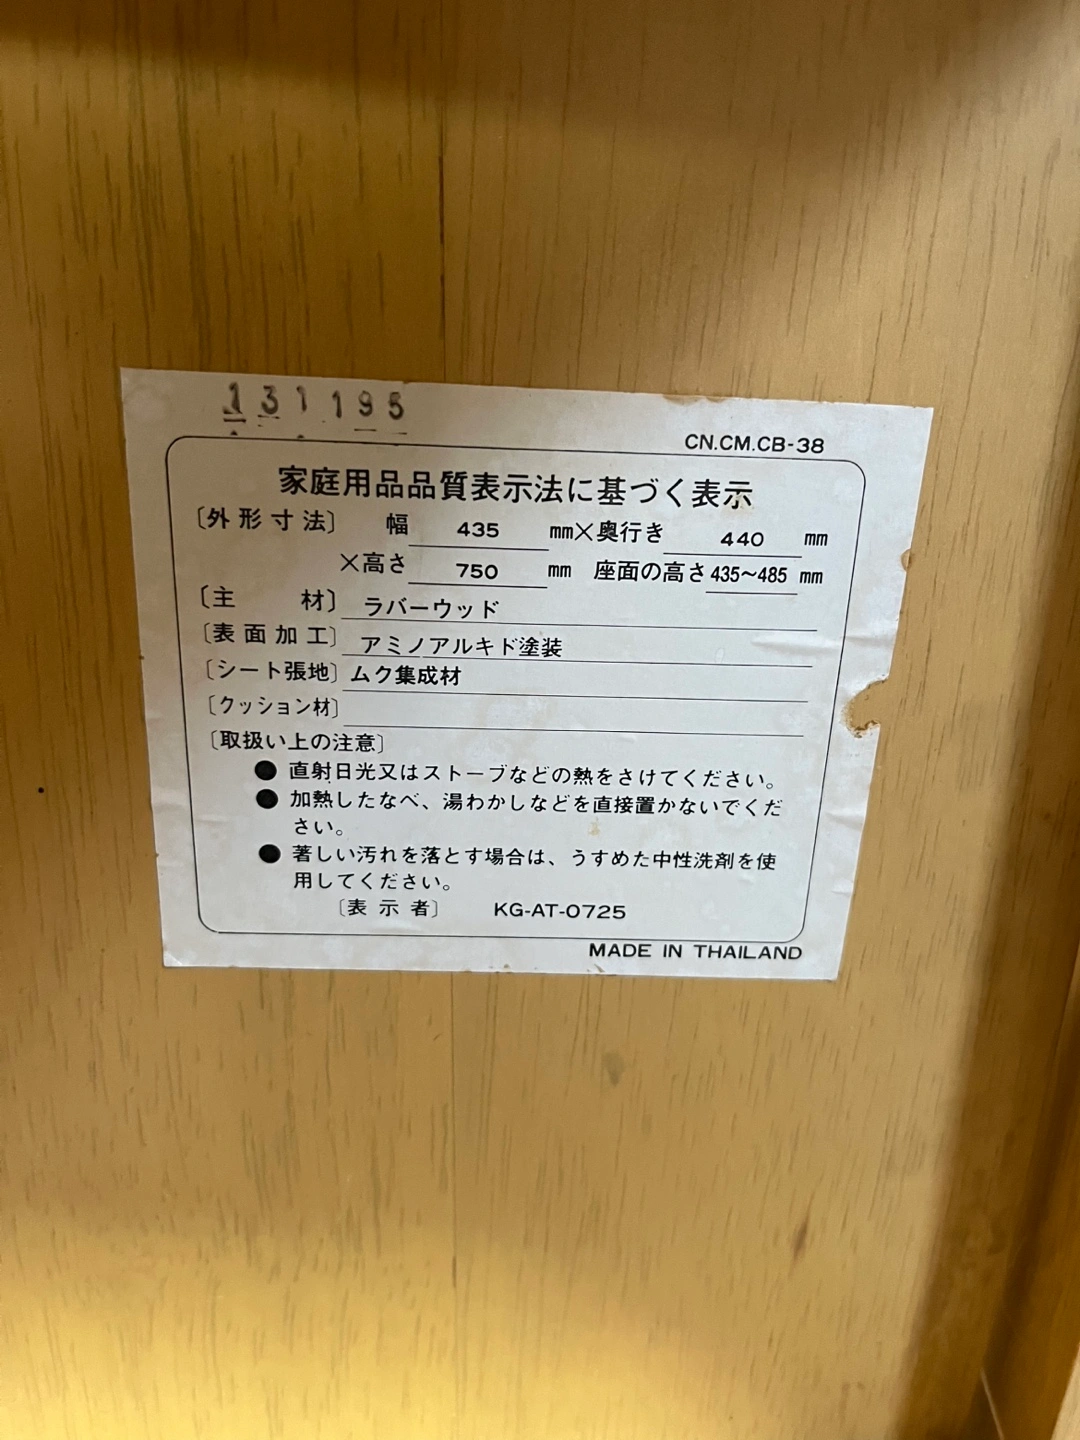 131195
CN.CM.CB-38
家庭用品品質表示法に基づく表示
〔外形寸法〕 幅 435 mm×奥行き 440 mm
×高さ 750 mm 座面の高さ 435〜485 mm
〔主 材〕 ラバーウッド
〔表面加工〕 アミノアルキド塗装
〔シート張地〕 ムク集成材
〔クッション材〕
〔取扱い上の注意〕
●直射日光又はストーブなどの熱をさけてください。
●加熱したなべ、湯わかしなどを直接置かないでくだ
さい。
●著しい汚れを落とす場合は、うすめた中性洗剤を使
用してください。
〔表示者〕 KG-AT-0725
MADE IN THAILAND